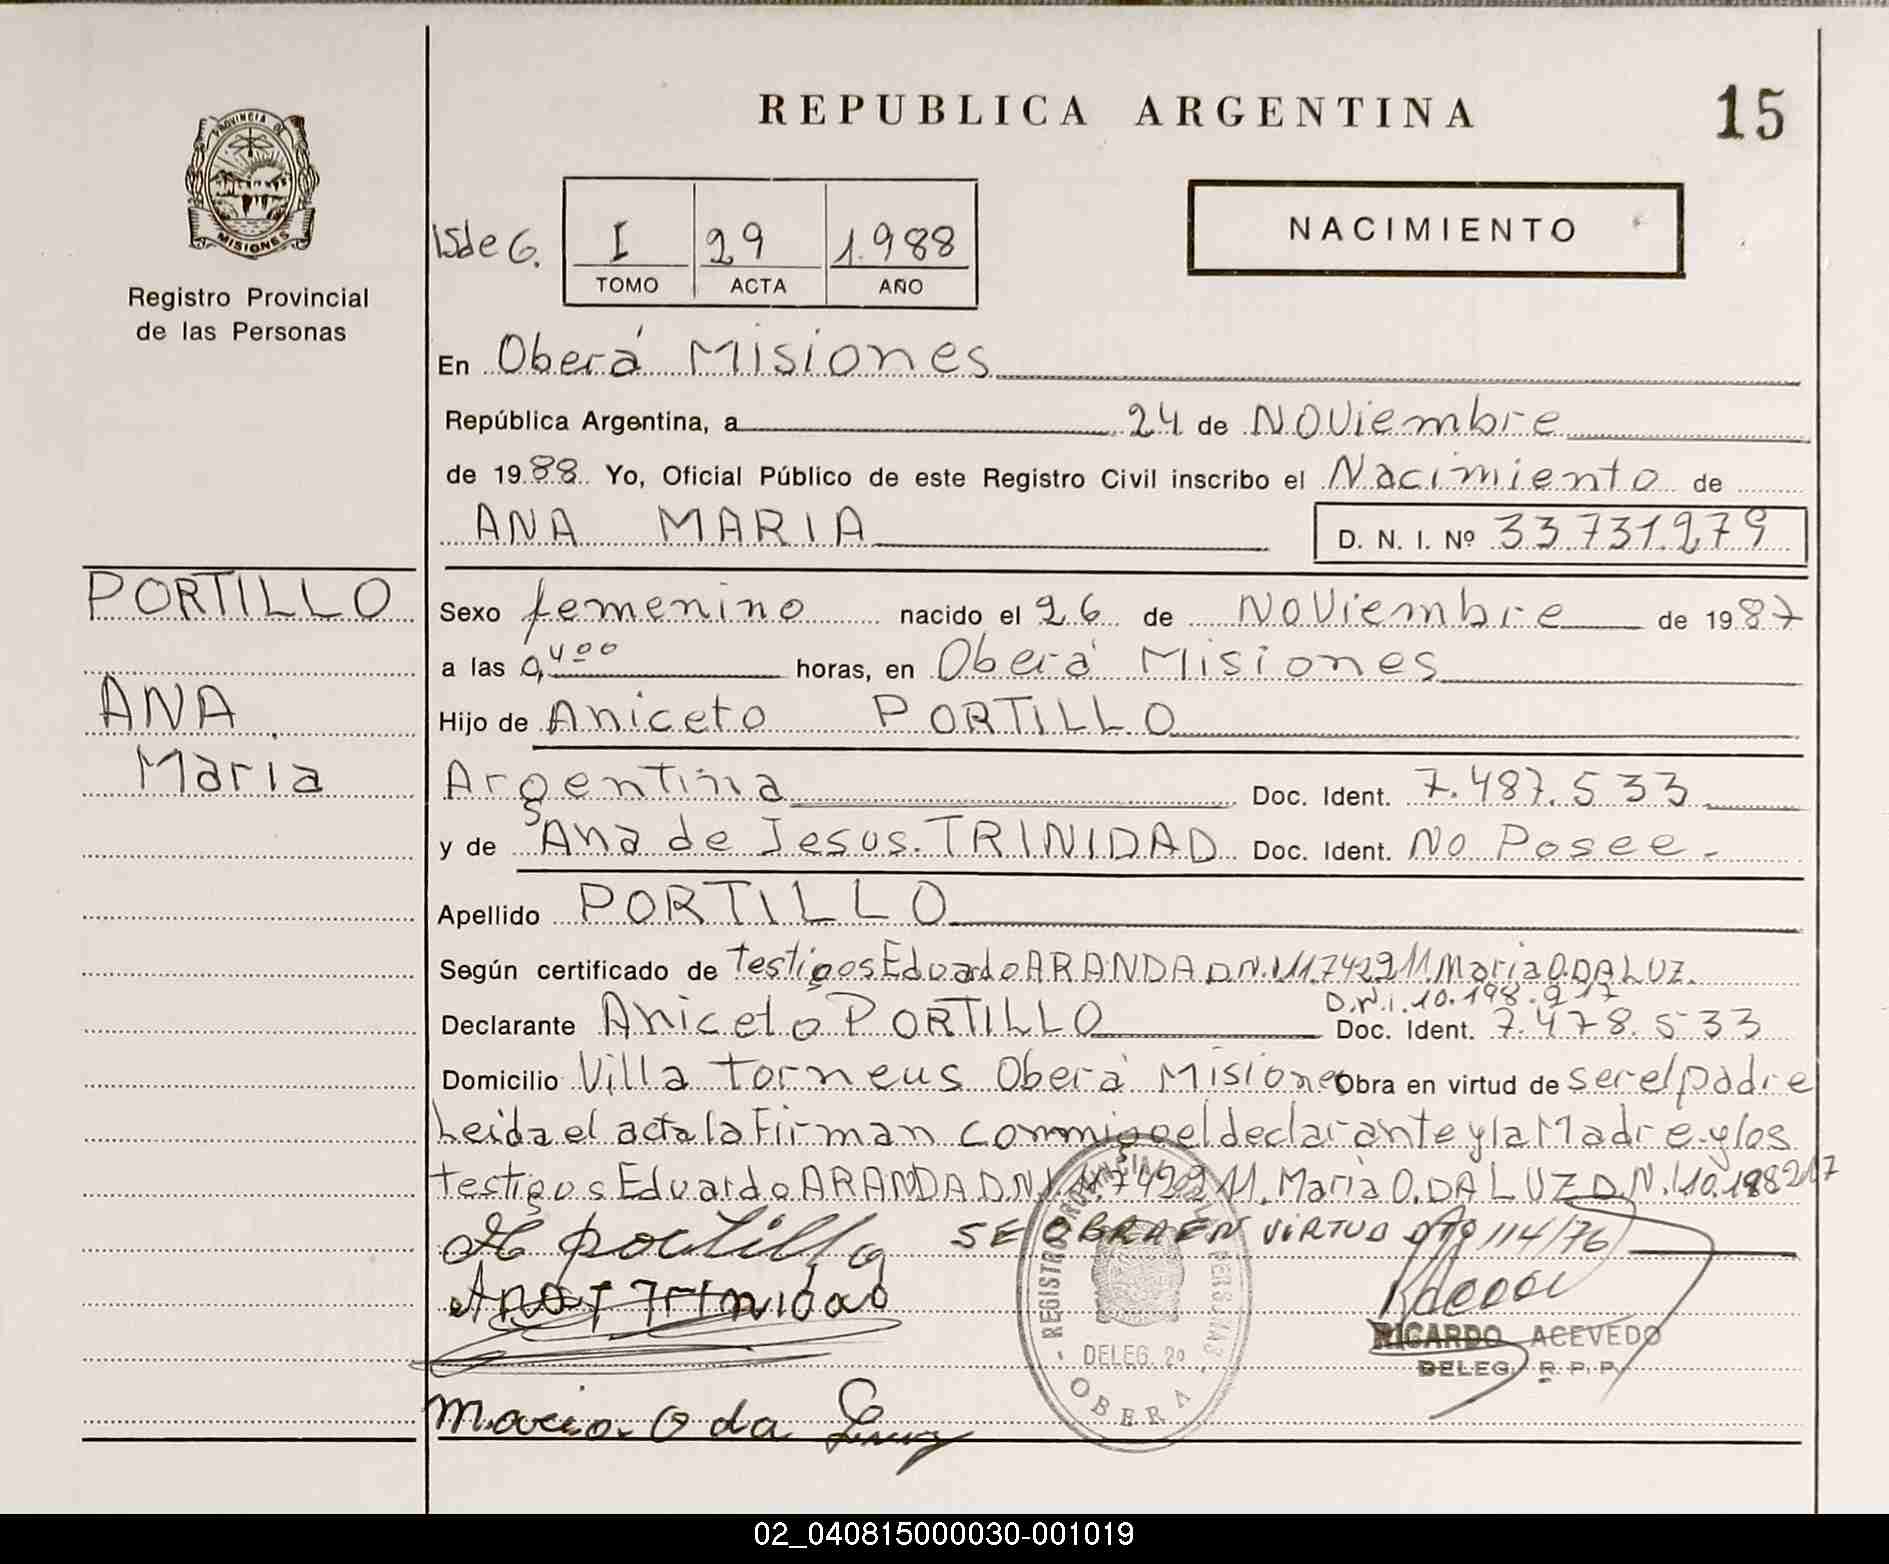 REPUBLICA ARGENTINA
15
PROVINCIA DE
MISIONES
Registro Provincial
de las Personas
NACIMIENTO
I 29 1.988
TOMO ACTA AÑO
En Oberá Misiones
República Argentina, a 24 de Noviembre
de 1988. Yo, Oficial Público de este Registro Civil inscribo el Nacimiento de
ANA MARIA
D. N. I. Nº 33.731.279
PORTILLO
ANA
Maria
Sexo femenino nacido el 26 de Noviembre de 1987
a las 0,400 horas, en Oberá Misiones
Hijo de Aniceto PORTILLO
Argentina Doc. Ident. 7.487.533
y de Ana de Jesus. TRINIDAD Doc. Ident. No Posee.-
Apellido PORTILLO
Según certificado de testigos Eduardo ARANDA D.N.I 11.742.911. Maria O. DA LUZ.
D.N.i. 10.198.217
Declarante Aniceto PORTILLO Doc. Ident. 7.478.533
Domicilio Villa Torneus Oberá Misiones Obra en virtud de ser el padre
Leida el acta la Firman conmigo el declarante y la Madre y los
testigos Eduardo ARANDA D.N.I 11.742911. Maria O. DA LUZ D.N.I 10.198217
portillo SE OBRA EN VIRTUD 114/76
Ana J Trinidad
REGISTRO PROVINCIAL DE LAS PERSONAS
DELEG. 2º
OBERA
RICARDO ACEVEDO
DELEG. R. P. P.
Maria O da Luz
02_040815000030-001019